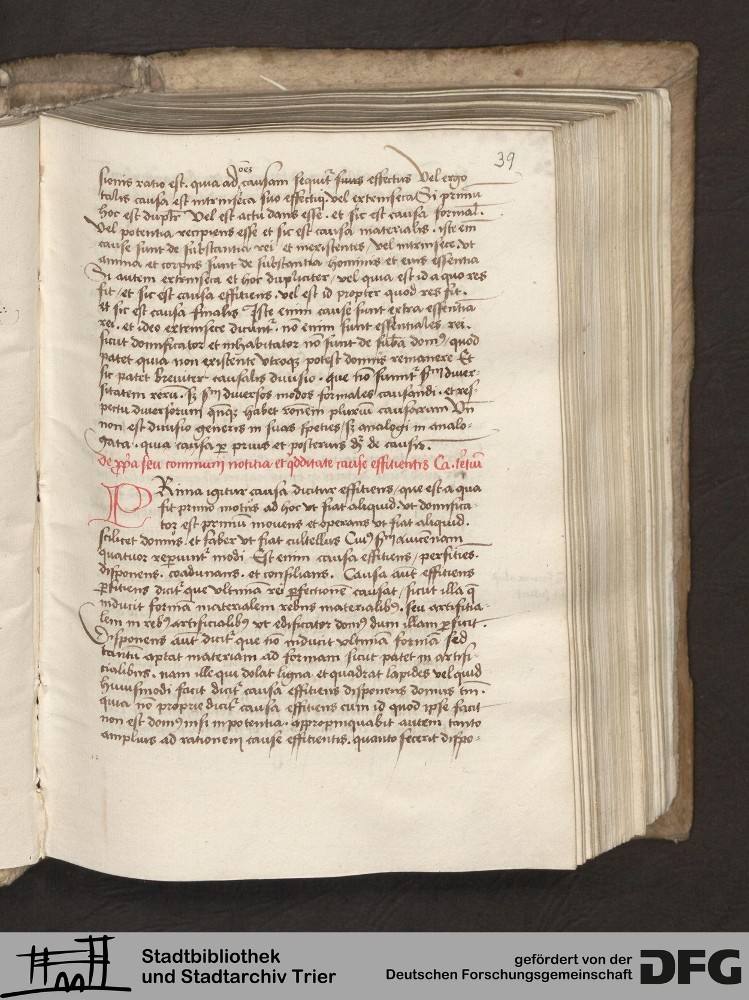 39
oes
sionis ratio est. quia ad causam sequit᷑ suus effectus Vel ergo
talis causa est intrinseca suo effectui vel extrinseca Si primū
hoc est duplr̄ Vel est actu dans esse. et sic est causa formal.
Vel potentia recipiens esse et sic est causa materialis. iste em̄
cause sunt de substantia rei et inexistentes Vel intrinsece. ut
anima et corpus sunt de substantia hominis et eius essentia
Si autem extrinseca et hoc dupliciter / vel quia est id a quo res
fit / et sic est causa effitiens. vel est id propter quod res fit.
et sic est causa finalis Iste enim cause sunt extra essentiā
rei. et ideo extrinsece dicūnt᷑. nō enim sunt essentiales rei.
sicut domificator et inhabitator nō sunt de sub̄a domꝰ / quod
patet quia non existente utroqꝫ potest domus remanere Et
sic patet breuiter causalis diuisio. que nō sumit᷑ sm̄ diuer-
sitatem rerū. sꝫ sm̄ diuersos modos formales causandi. et res-
pectu diuersorum habet ronēm pluriū causarum Vn̄
non est diuisio generis in suas species / sꝫ analogi in analo-
gata. quia causa ꝑ prius et posterius dꝫ de causis.
de ꝓp̄a seu communi notitia et qͥdditate cause effitientis Ca. tetiū
PRima igitur causa dicitur effitiens / que est a qua
fit primo motus ad hoc ut fiat aliquid. ut domifica-
tor est primū mouens et operans ut fiat aliquid.
scilicet domus. et faber ut fiat cultellus Cuiꝰ sm̄ auicenam
quatuor reperiunt᷑ modi Est enim causa effitiens / perfities.
disponens. coadunans. et consilians. Causa aūt effitiens
ꝑfitiens dicit᷑ que ultimā rei ꝑfectionē causat / sicut illa q̄
inducit formā materialem rebus materialibꝰ. seu artifitia-
lem in rebꝰ artificialibꝰ ut edificator domꝰ dum illam ꝑficit.
Disponens aūt dicit᷑ que nō inducit ultimā formā sed
tantū aptat materiam ad formam sicut patet in artifi-
cialibus. nam ille qui dolat ligna et quadrat lapides vel quid
huiusmodi facit dicit᷑ causa effitiens disponens domus tn̄.
quia nō proprie dicit᷑ causa effitiens cum id quod ipse facit
non est domꝰ nisi in potentia. appropinquabit autem tanto
amplius ad rationem cause effitientis. quanto fecerit dispo-
Stadtbibliothek
und Stadtarchiv Trier
gefördert von der
Deutschen Forschungsgemeinschaft
DFG